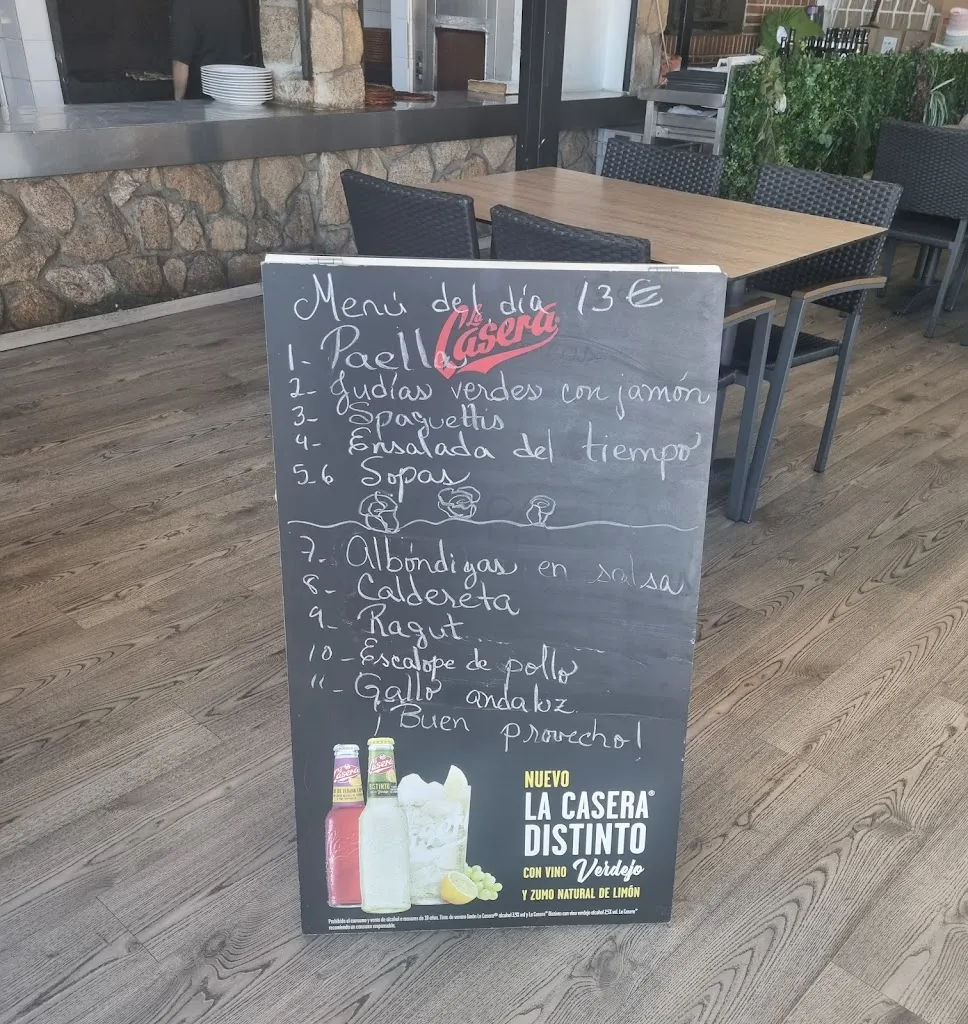 Menú del día 13 €
La Casera
1- Paella
2- Judías verdes con jamón
3- Spaguettis
4- Ensalada del tiempo
5-6 Sopas
7- Albóndigas en salsa
8- Caldereta
9- Ragut
10- Escalope de pollo
11- Gallo andaluz
¡Buen provecho!
NUEVO
LA CASERA®
DISTINTO
CON VINO Verdejo
Y ZUMO NATURAL DE LIMÓN